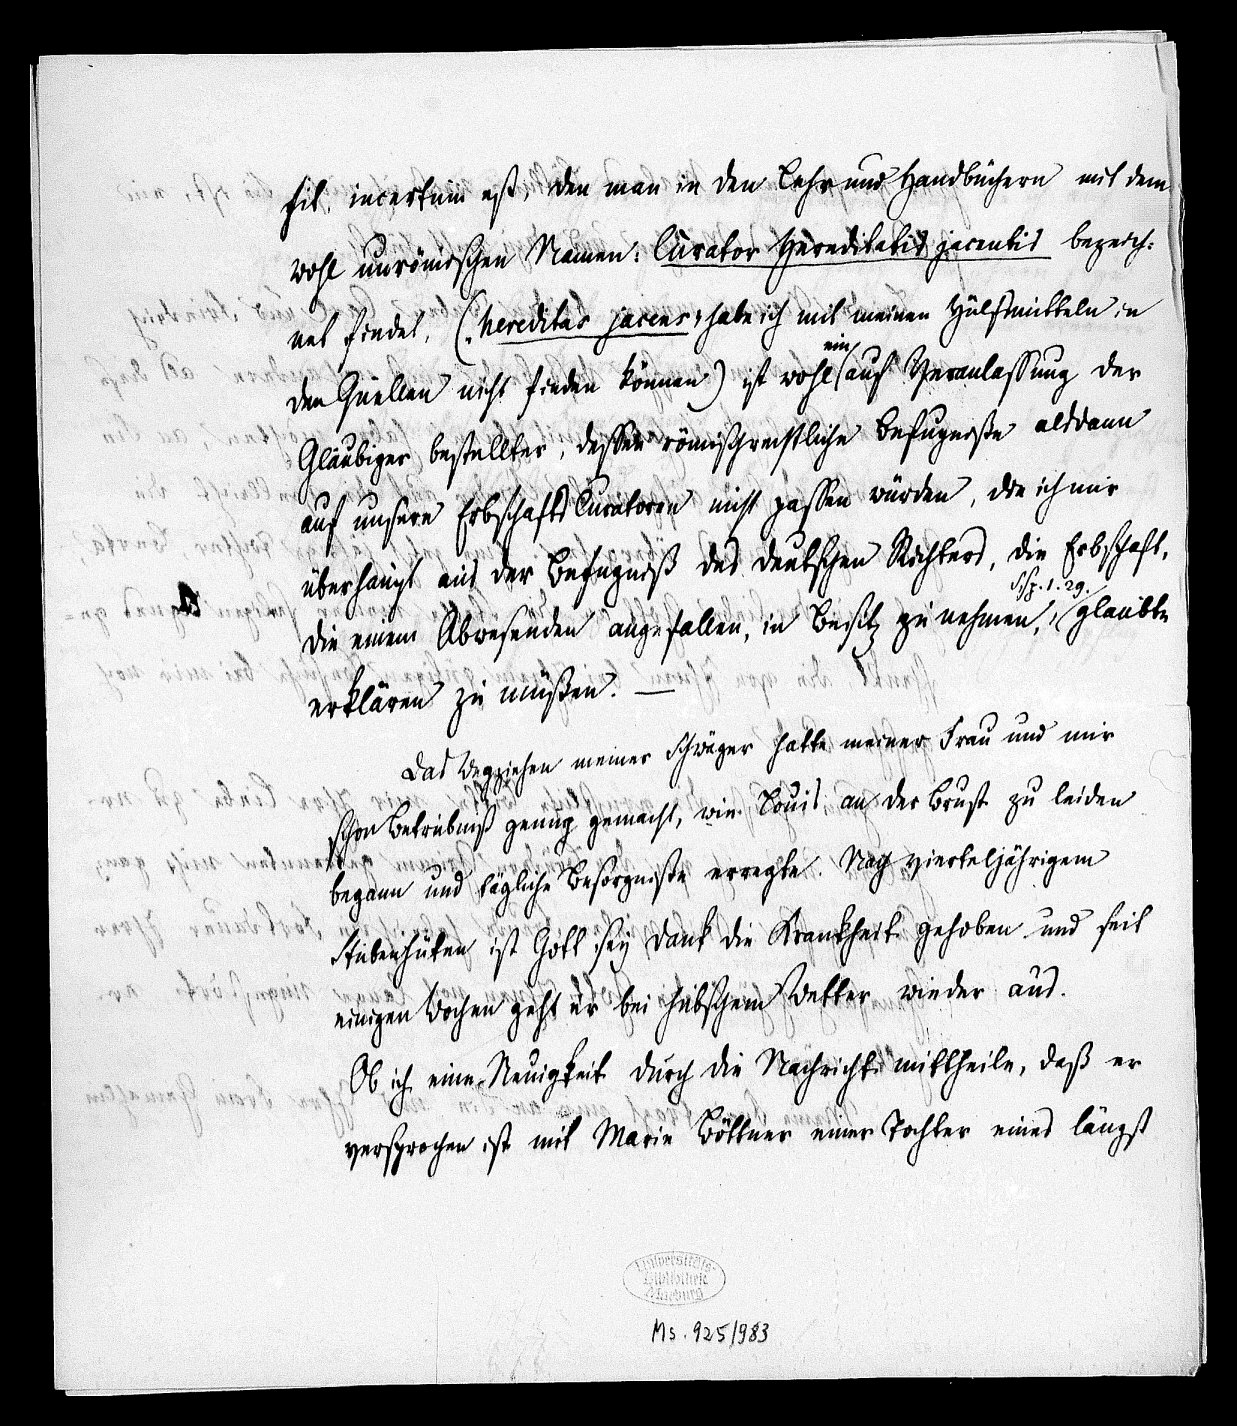 sit, incertum est, den man in den Lehr und Handbüchern mit dem
wohl unrömischen Namen: Curator Hereditatis jacentis bezeich:
net findet, („hereditas jacens“ habe ich mit meinen Hülfsmitteln in
den Quellen nicht finden können) ist wohl ein auf Veranlassung der
Gläubiger bestellter, dessen römischrechtliche Befugnisse alsdann
auf unsere Erbschafts Curatoren nicht passen würden, die ich mir
überhaupt aus der Befugniß des deutschen Richters, die Erbschaft,
die einem Abwesenden angefallen, in Besitz zu nehmen, Ssp. 1. 29. glaubte
erklären zu müßen. —
Das Wegziehen meiner Schwäger hatte meiner Frau und mir
schon Betrübniß genug gemacht, wie Louis an der Brust zu leiden
begann und tägliche Besorgnisse erregte. Nach vierteljährigem
Stubenhüten ist Gott sey Dank die Krankheit gehoben und seit
einigen Wochen geht er bei hübschem Wetter wieder aus.
Ob ich eine Neuigkeit durch die Nachricht mittheile, daß er
versprochen ist mit Marie Böttner einer Tochter eines längst
Universitäts-
Bibliothek
Marburg
Ms. 925/983